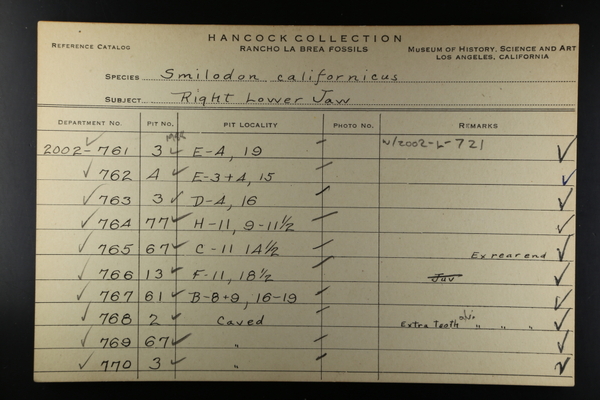 HANCOCK COLLECTION
REFERENCE CATALOG RANCHO LA BREA FOSSILS MUSEUM OF HISTORY, SCIENCE AND ART
LOS ANGELES, CALIFORNIA
SPECIES Smilodon californicus
SUBJECT Right Lower Jaw
DEPARTMENT NO. PIT NO. PIT LOCALITY PHOTO NO. REMARKS
2002-761 3 E-4, 19 w/2002-L-721
762 4 E-3+4, 15
763 3 D-4, 16
764 77 H-11, 9-11½
765 67 C-11 14½ Ex rear end
766 13 F-11, 18½ Juv
767 61 B-8+9, 16-19
768 2 Caved Extra Tooth " " "
769 67 "
770 3 "